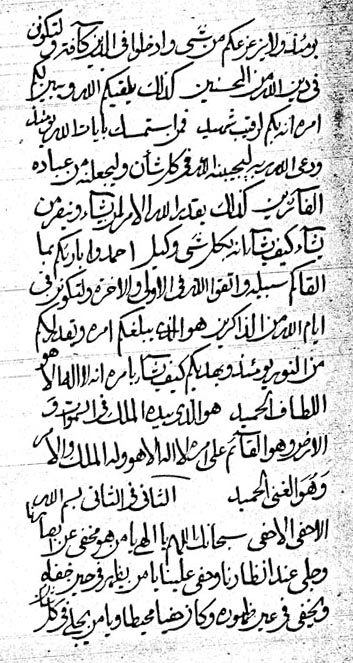 يومئذ ولا يزعزعكم من شيء وادخلوا في الدين كافة ولتكونن
في دين الله من المحسنين كذلك يلقيكم الله ويبين لكم
امره ان ربكم لرقيب شهيد فمن استمسك بايات الله يومئذ
ودعى الله ربه ليجيبنه الله في كل شأن وليجعلنه من عباده
الفائزين كذلك يقدر الله الامر لمن يشاء وينفر من
يشاء كيف يشاء انه بكل شيء وكيل احمدوا بارئكم بما
القاكم سبيله واتقوا الله في الاولى والاخرة ولتكونن في
ايام الله من الذاكرين هو الذي يبلغكم امره ويهديكم
من النور يومئذ ويهديكم كيف يشاء بامره انه لا اله الا هو
اللطاف الحميد هو الذي بيده الملك في السموات و
الارض وهو القائم على امره لا اله الا هو وله الملك والامر
وهو الغني الحميد الثاني في الثاني بسم الله
الاخفى الاخفى سبحانك اللهم يا الهي يا من هو مخفي عن ابصارنا
وجلى عند انظارنا وخفي علينا يا من يظهر في حين خفائه
ويخفى في عين ظهوره وكان خفيا محيطا ويا من يجلى في كل